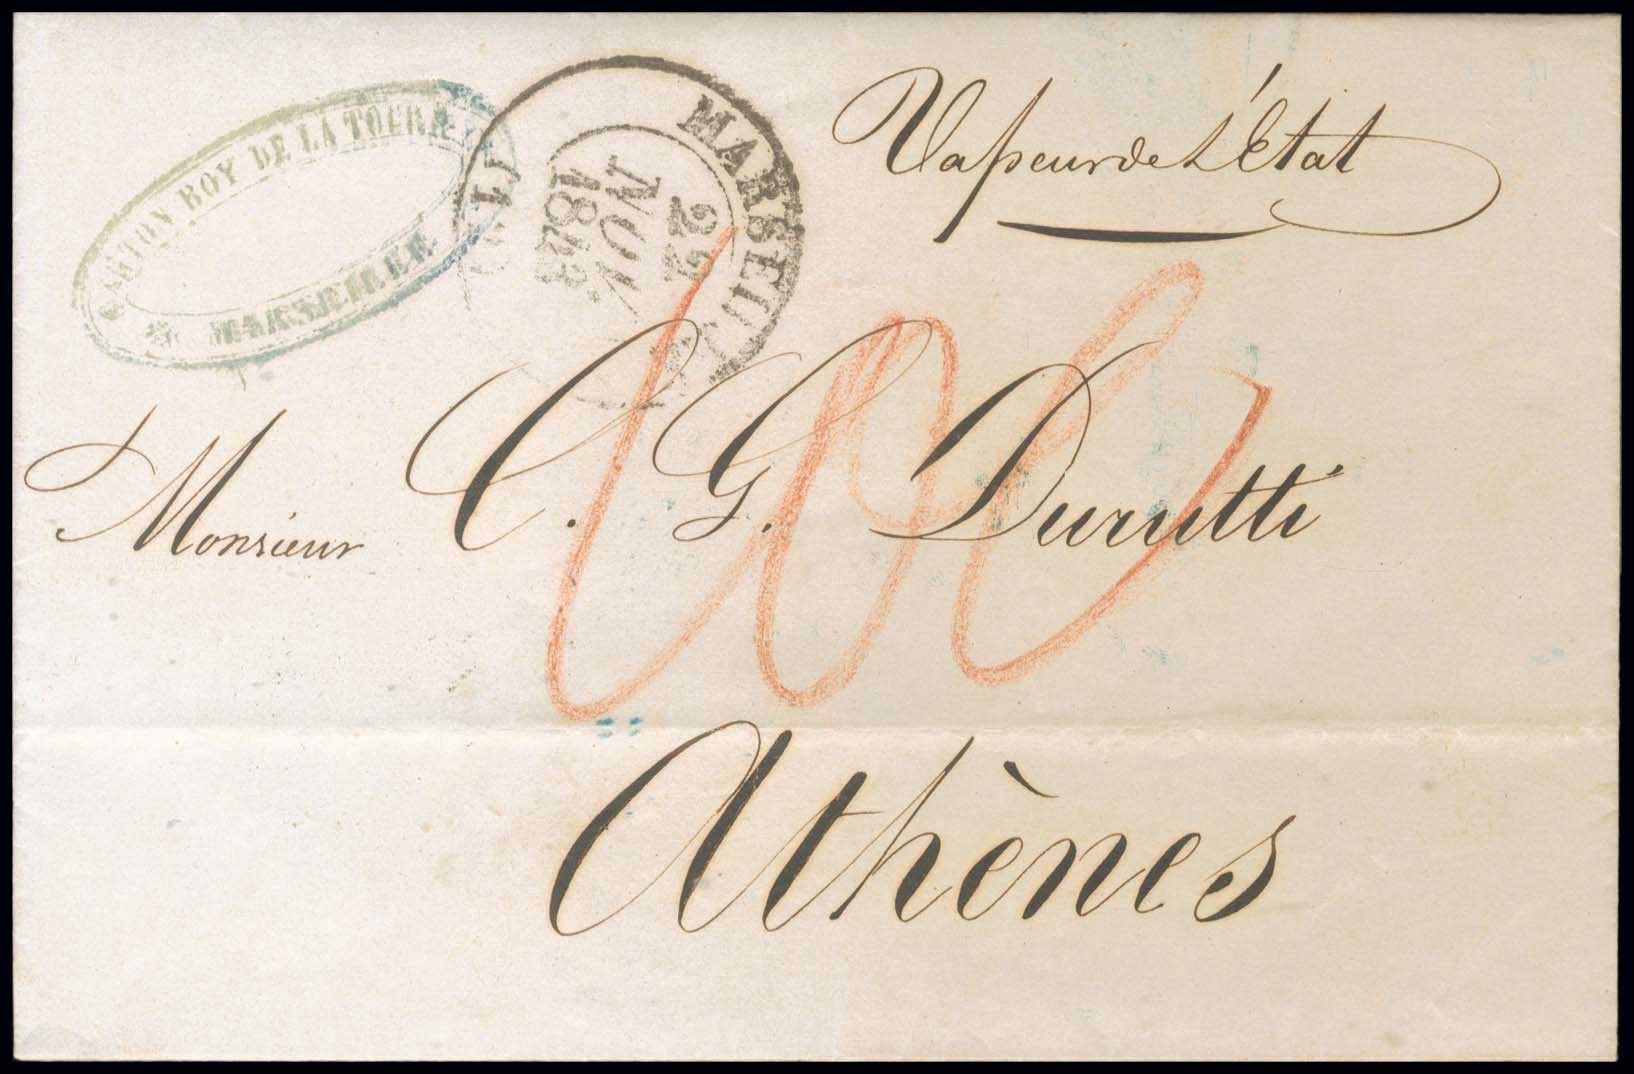 BOY DE LA TOUR
MARSEILLE
MARSEILLE
22
NOV.
1843
Vapeur de L'État
Monsieur C. G. Durutti
Athènes